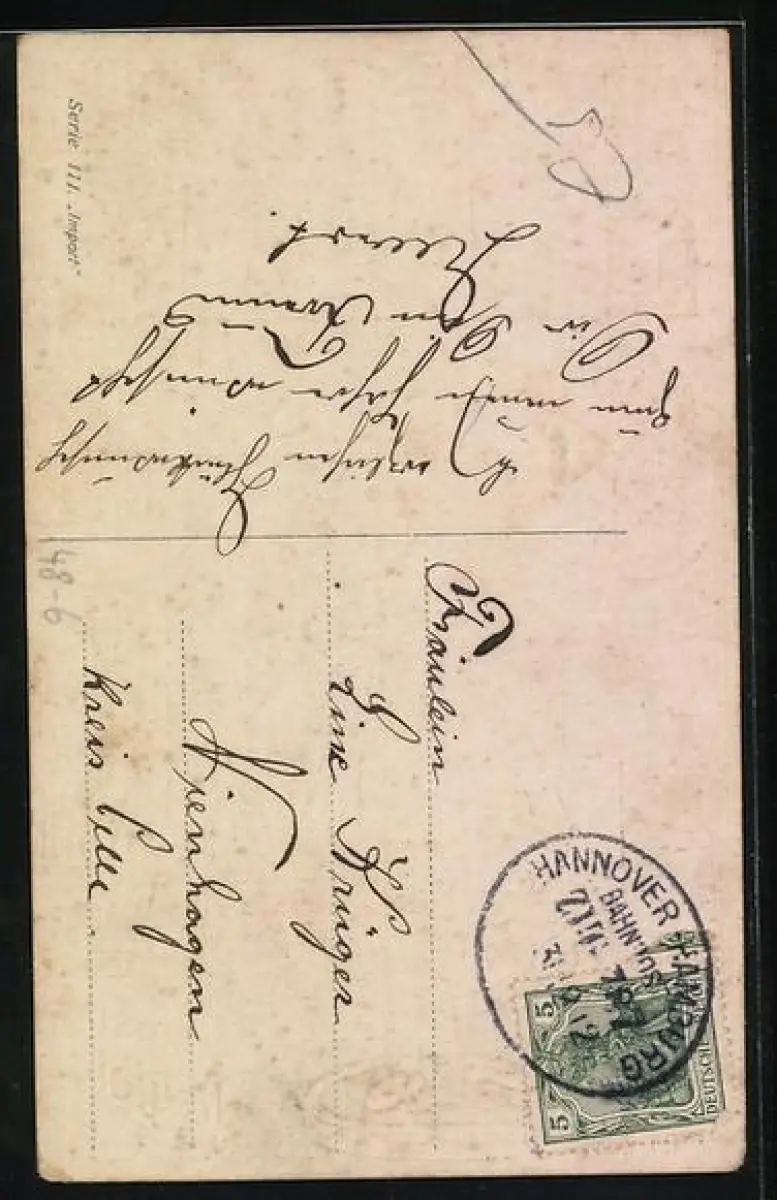 Serie 111. „Import"
Herzlichen Glückwunsch
zum neuen Jahre wünscht
Dir Dein
148-6
Fräulein
Line Krüger
Nienhagen
Kreis Celle
HANNOVER HAMBURG
BAHNPOST
ZUG 787
31 12
5 5
DEUTSCHES